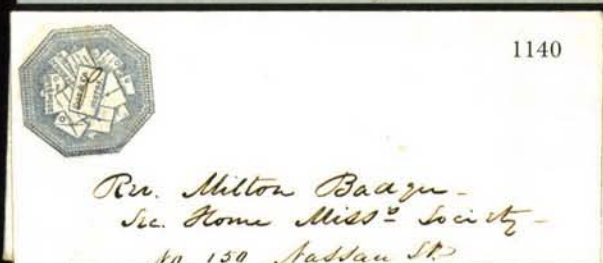 1140
Rev. Milton Badger -
Sec. Home Miss^y Society -
No 150 Nassau St.